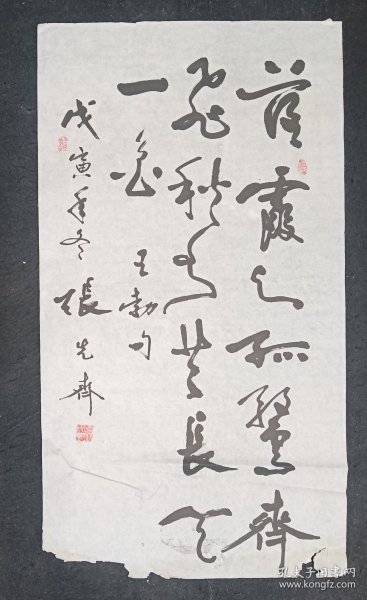 落霞与孤鶩齊
飛秋水共長天
一色 王勃句
戊寅年冬 張先齊
孔夫子旧书网
www.kongfz.com